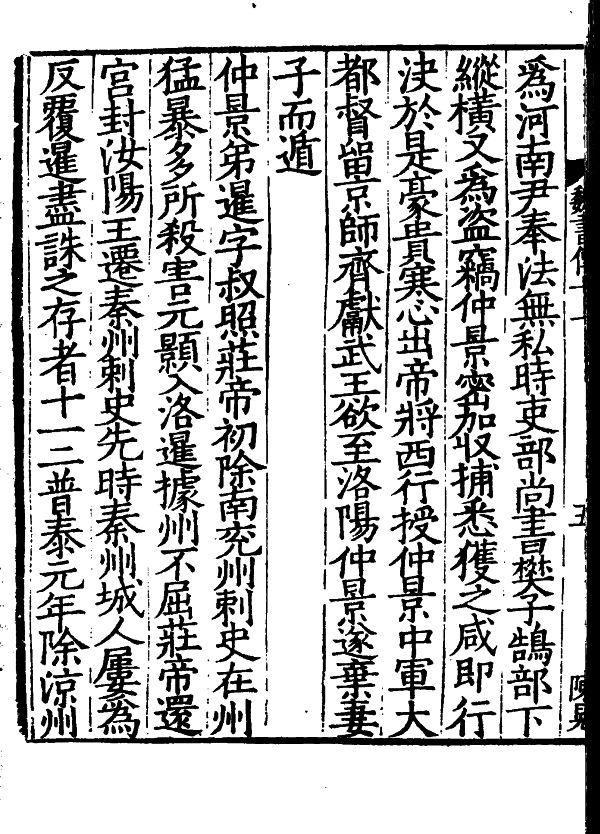 爲河南尹奉法無私時吏部尚書樊子鵠部下
縱橫又爲盜竊仲景密加收捕悉獲之咸即行
決於是豪貴寒心出帝將西行授仲景中軍大
都督留京師齊獻武王欲至洛陽仲景遂棄妻
子而遁
仲景弟暹字叔照莊帝初除南兖州刺史在州
猛暴多所殺害元顥入洛暹據州不屈莊帝還
宮封汝陽王遷秦州刺史先時秦州城人屢爲
反覆暹盡誅之存者十一二普泰元年除涼州